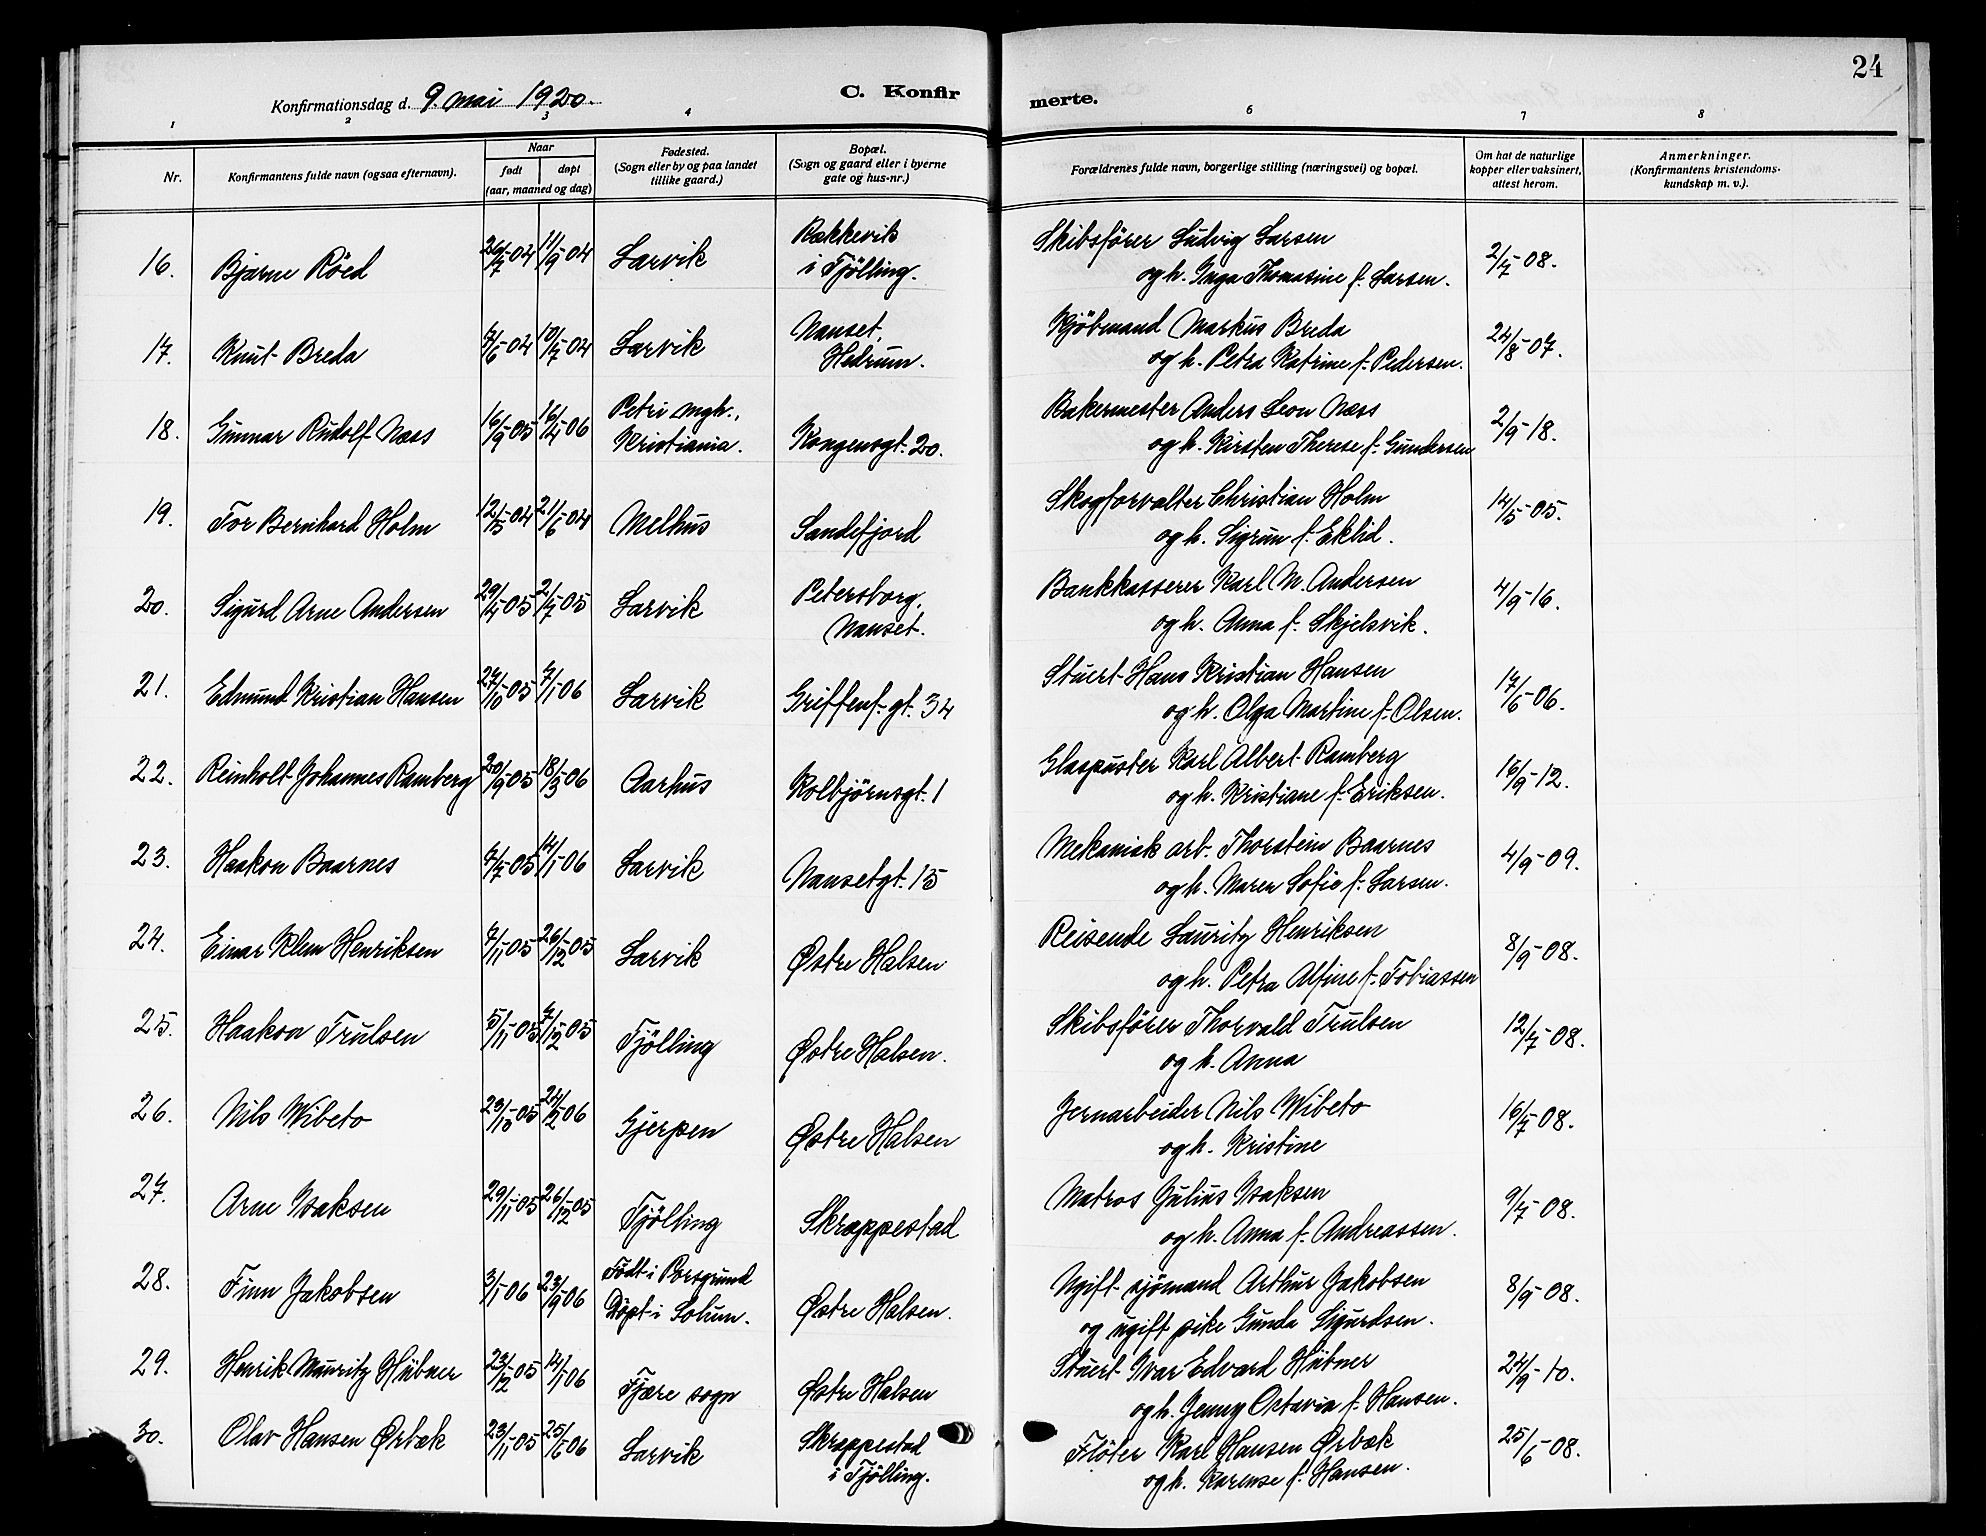 24
Konfirmationsdag d. 9. mai 1920.
C. Konfir
merte.
1 2 3 4 6 7 8
Nr.
Konfirmantens fulde navn (ogsaa efternavn).
Naar
født døpt
(aar, maaned og dag)
Fødested.
(Sogn eller by og paa landet
tillike gaard.)
Bopæl.
(Sogn og gaard eller i byerne
gate og hus-nr.)
Forældrenes fulde navn, borgerlige stilling (næringsvei) og bopæl.
Om hat de naturlige
kopper eller vaksinert,
attest herom.
Anmerkninger.
(Konfirmantens kristendoms-
kundskap m. v.).
16. Bjarne Röed 26/7-04 11/9-04 Larvik Rækkevik
i Tjölling.
Skibsförer Ludvig Larsen
og h. Inga Thomasine f. Larsen. 2/7-08.
17. Knut Breda 7/6-04 10/7-04 Larvik Nanset,
Hedrum.
Kjöbmand Markus Breda
og h. Petra Katrine f. Pedersen. 24/8-07.
18. Gunnar Rudolf Næss 16/9-05 16/4-06 Petri mgh.,
Kristiania. Kongensgt. 20.
Bakermester Anders Leon Næss
og h. Kirsten Therese f. Gundersen 2/9-18.
19. Tor Bernhard Holm 12/5-04 21/6-04 Melhus Sandefjord
Skogforvalter Christian Holm
og h. Sigrun f. Eklid. 14/5-05.
20. Sigurd Arne Andersen 29/4-05 2/7-05 Larvik Petersborg,
Nanset.
Bankkasserer Karl M. Andersen
og h. Anna f. Skjelsvik. 4/9-16.
21. Edmund Kristian Hansen 27/10-05 7/1-06 Larvik Griffenf. gt. 34
Stuert Hans Kristian Hansen
og h. Olga Martine f. Olsen. 17/6-06.
22. Reinholt Johannes Ramberg 20/9-05 18/3-06 Aarhus Kolbjörnsgt. 1
Glaspuster Karl Albert Ramberg
og h. Kristiane f. Eriksen. 16/9-12.
23. Haakon Baarnes 7/7-05 14/1-06 Larvik Nansetgt. 15
Mekanisk arb. Thorstein Baarnes
og h. Maren Sofie f. Larsen. 4/9-09.
24. Einar Klem Henriksen 7/11-05 26/12-05 Larvik Østre Halsen
Reisende Lauritz Henriksen
og h. Petra Alfine f. Tobiassen 8/9-08.
25. Haakon Trulsen 5/11-05 7/12-05 Tjölling Østre Halsen.
Skibsförer Thorvald Trulsen
og h. Anna 12/7-08.
26. Nils Wibeto 23/10-05 24/2-06 Gjerpen Østre Halsen
Jernarbeider Nils Wibeto
og h. Kristine 16/7-08.
27. Arne Isaksen 29/11-05 26/12-05 Tjölling Skræppestad
Matros Julius Isaksen
og h. Anna f. Andreassen. 9/7-08.
28. Finn Jakobsen 3/1-06 23/9-06 Födt i Porsgrund
Döpt i Solum. Østre Halsen.
Ugift sjömand Arthur Jakobsen
og ugift pike Gunda Sigurdsen. 8/9-08.
29. Henrik Mauritz Hübner 23/12-05 14/1-06 Fjære sogn Østre Halsen
Stuert Ivar Edvard Hübner
og h. Jenny Octavia f. Hansen. 24/9-10.
30. Olav Hansen Ørbæk 23/11-05 25/6-06 Larvik Skræppestad
i Tjölling.
Flöter Karl Hansen Ørbæk
og h. Karense f. Hansen. 25/6-08.